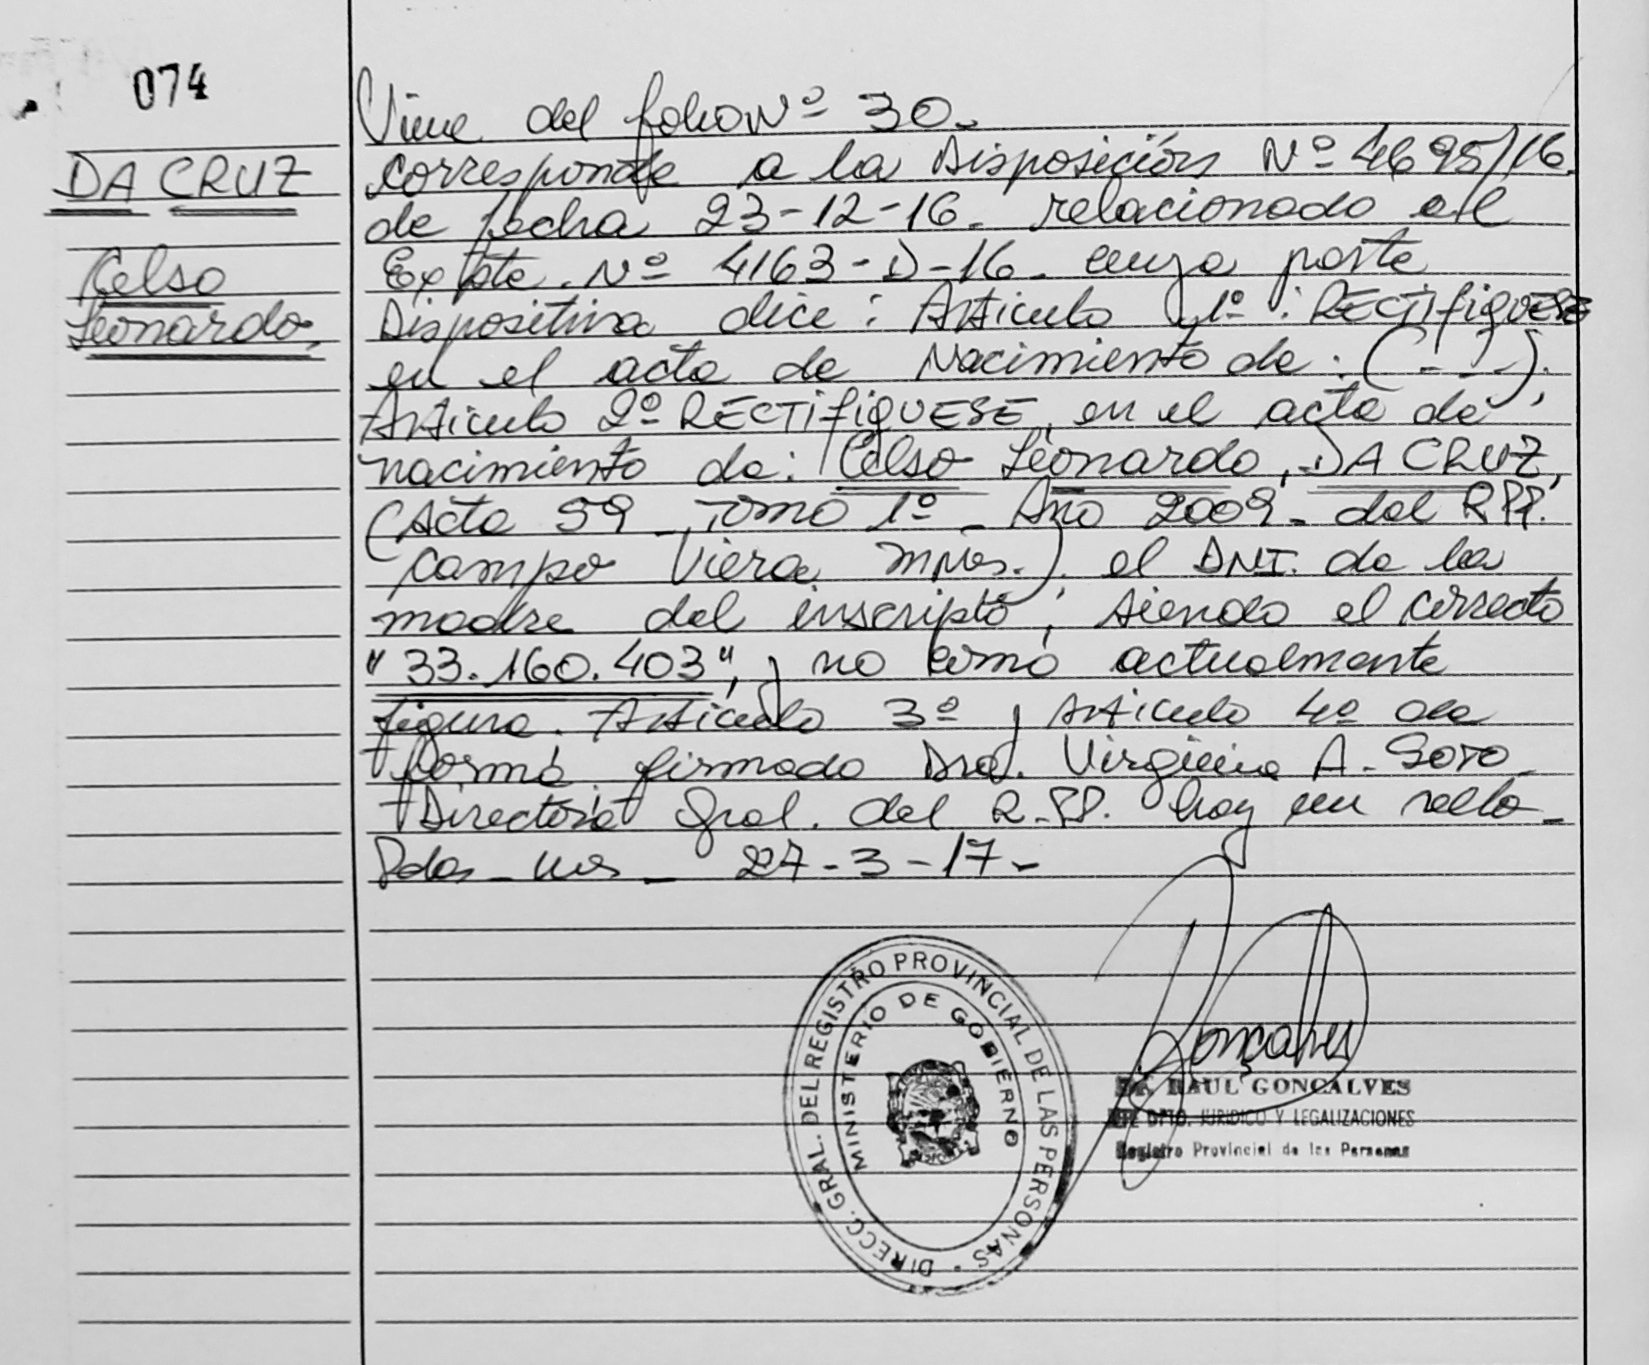 074
DA CRUZ
Celso
Leonardo.
Viene del folio Nº 30.
corresponde a la Disposición Nº 4695/16.
de fecha 23-12-16. relacionado al
Expte. Nº 4163-D-16. cuya parte
Dispositiva dice: Articulo 1º: RECTIFIQUESE
en el acta de Nacimiento de: (- - -).
Articulo 2º RECTIFIQUESE, en el acta de
nacimiento de: Celso Leonardo, DA CRUZ,
(Acta 59 - Tomo 1º - Año 2009 - del RPP.
Campo Viera Mnes.). el DNI. de la
madre del inscripto, siendo el correcto
"33.160.403", y no como actualmente
figura. Articulo 3º y Articulo 4º de
forma firmado Dra. Virginia A. Soto
Directora Gral. del R.PP. hay un sello -
Pdas - Mnes - 27-3-17-
DIRECC. GRAL. DEL REGISTRO PROVINCIAL DE LAS PERSONAS
MINISTERIO DE GOBIERNO
Goncalves
Dr. RAUL GONCALVES
JEFE DPTO. JURIDICO Y LEGALIZACIONES
Registro Provincial de las Personas